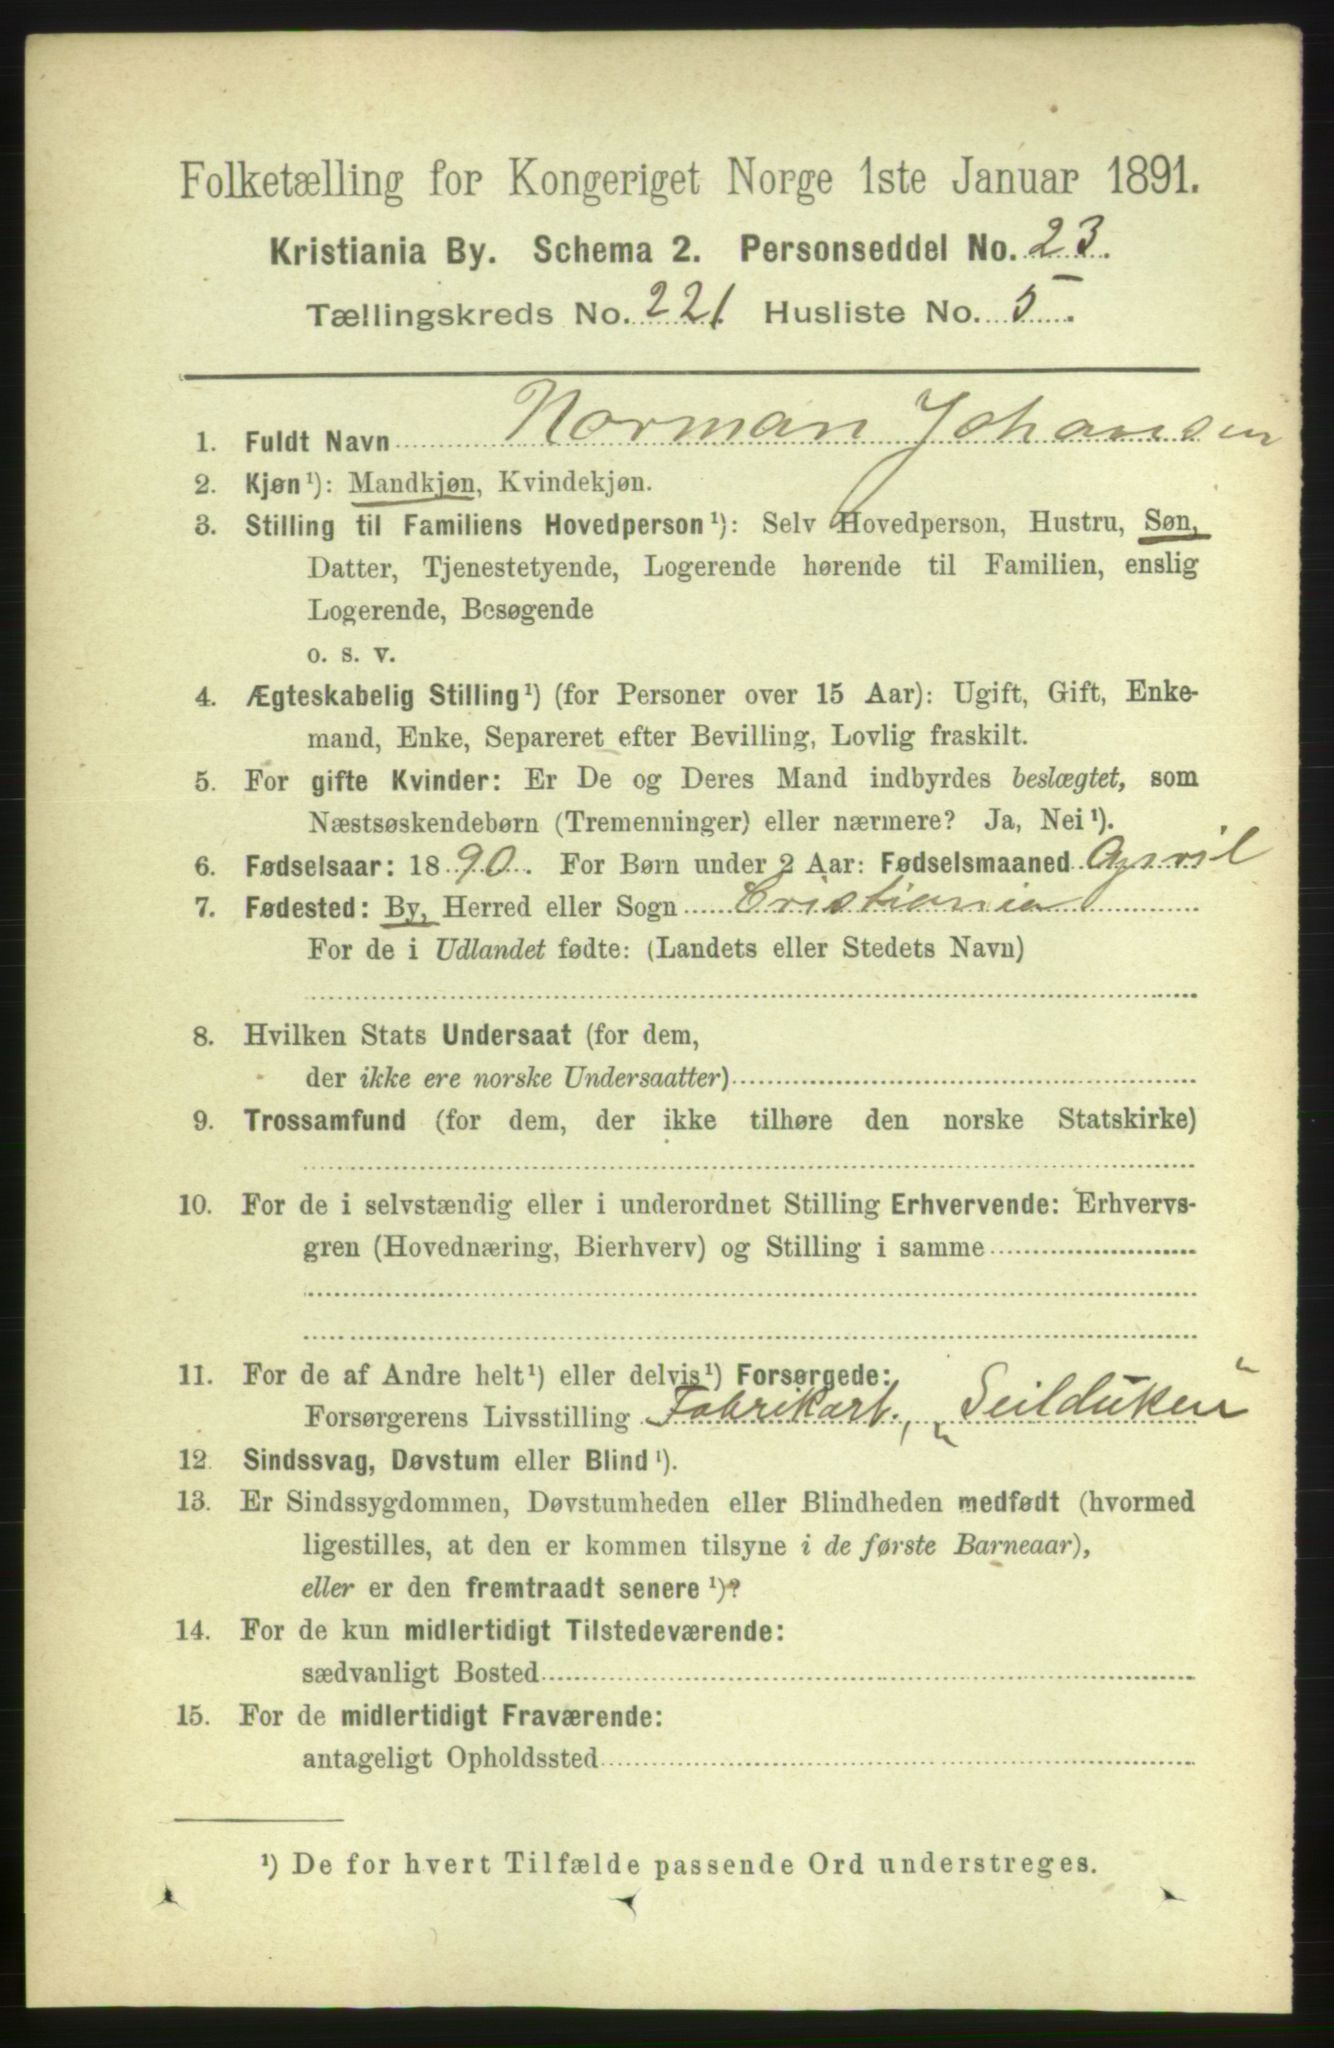 Folketælling for Kongeriget Norge 1ste Januar 1891.
Kristiania By. Schema 2. Personseddel No. 23.
Tællingskreds No. 221 Husliste No. 5.
1. Fuldt Navn Norman Johansen
2. Kjøn¹): Mandkjøn, Kvindekjøn.
3. Stilling til Familiens Hovedperson¹): Selv Hovedperson, Hustru, Søn,
Datter, Tjenestetyende, Logerende hørende til Familien, enslig
Logerende, Besøgende
o. s. v.
4. Ægteskabelig Stilling¹) (for Personer over 15 Aar): Ugift, Gift, Enke-
mand, Enke, Separeret efter Bevilling, Lovlig fraskilt.
5. For gifte Kvinder: Er De og Deres Mand indbyrdes beslægtet, som
Næstsøskendebørn (Tremenninger) eller nærmere? Ja, Nei¹).
6. Fødselsaar: 1890. For Børn under 2 Aar: Fødselsmaaned April
7. Fødested: By, Herred eller Sogn Cristiania
For de i Udlandet fødte: (Landets eller Stedets Navn)
8. Hvilken Stats Undersaat (for dem,
der ikke ere norske Undersaatter)
9. Trossamfund (for dem, der ikke tilhøre den norske Statskirke)
10. For de i selvstændig eller i underordnet Stilling Erhvervende: Erhvervs-
gren (Hovednæring, Bierhverv) og Stilling i samme
11. For de af Andre helt¹) eller delvis¹) Forsørgede:
Forsørgerens Livsstilling Fabrikarb., „Seilduken"
12. Sindssvag, Døvstum eller Blind¹).
13. Er Sindssygdommen, Døvstumheden eller Blindheden medfødt (hvormed
ligestilles, at den er kommen tilsyne i de første Barneaar),
eller er den fremtraadt senere¹)?
14. For de kun midlertidigt Tilstedeværende:
sædvanligt Bosted
15. For de midlertidigt Fraværende:
antageligt Opholdssted
¹) De for hvert Tilfælde passende Ord understreges.